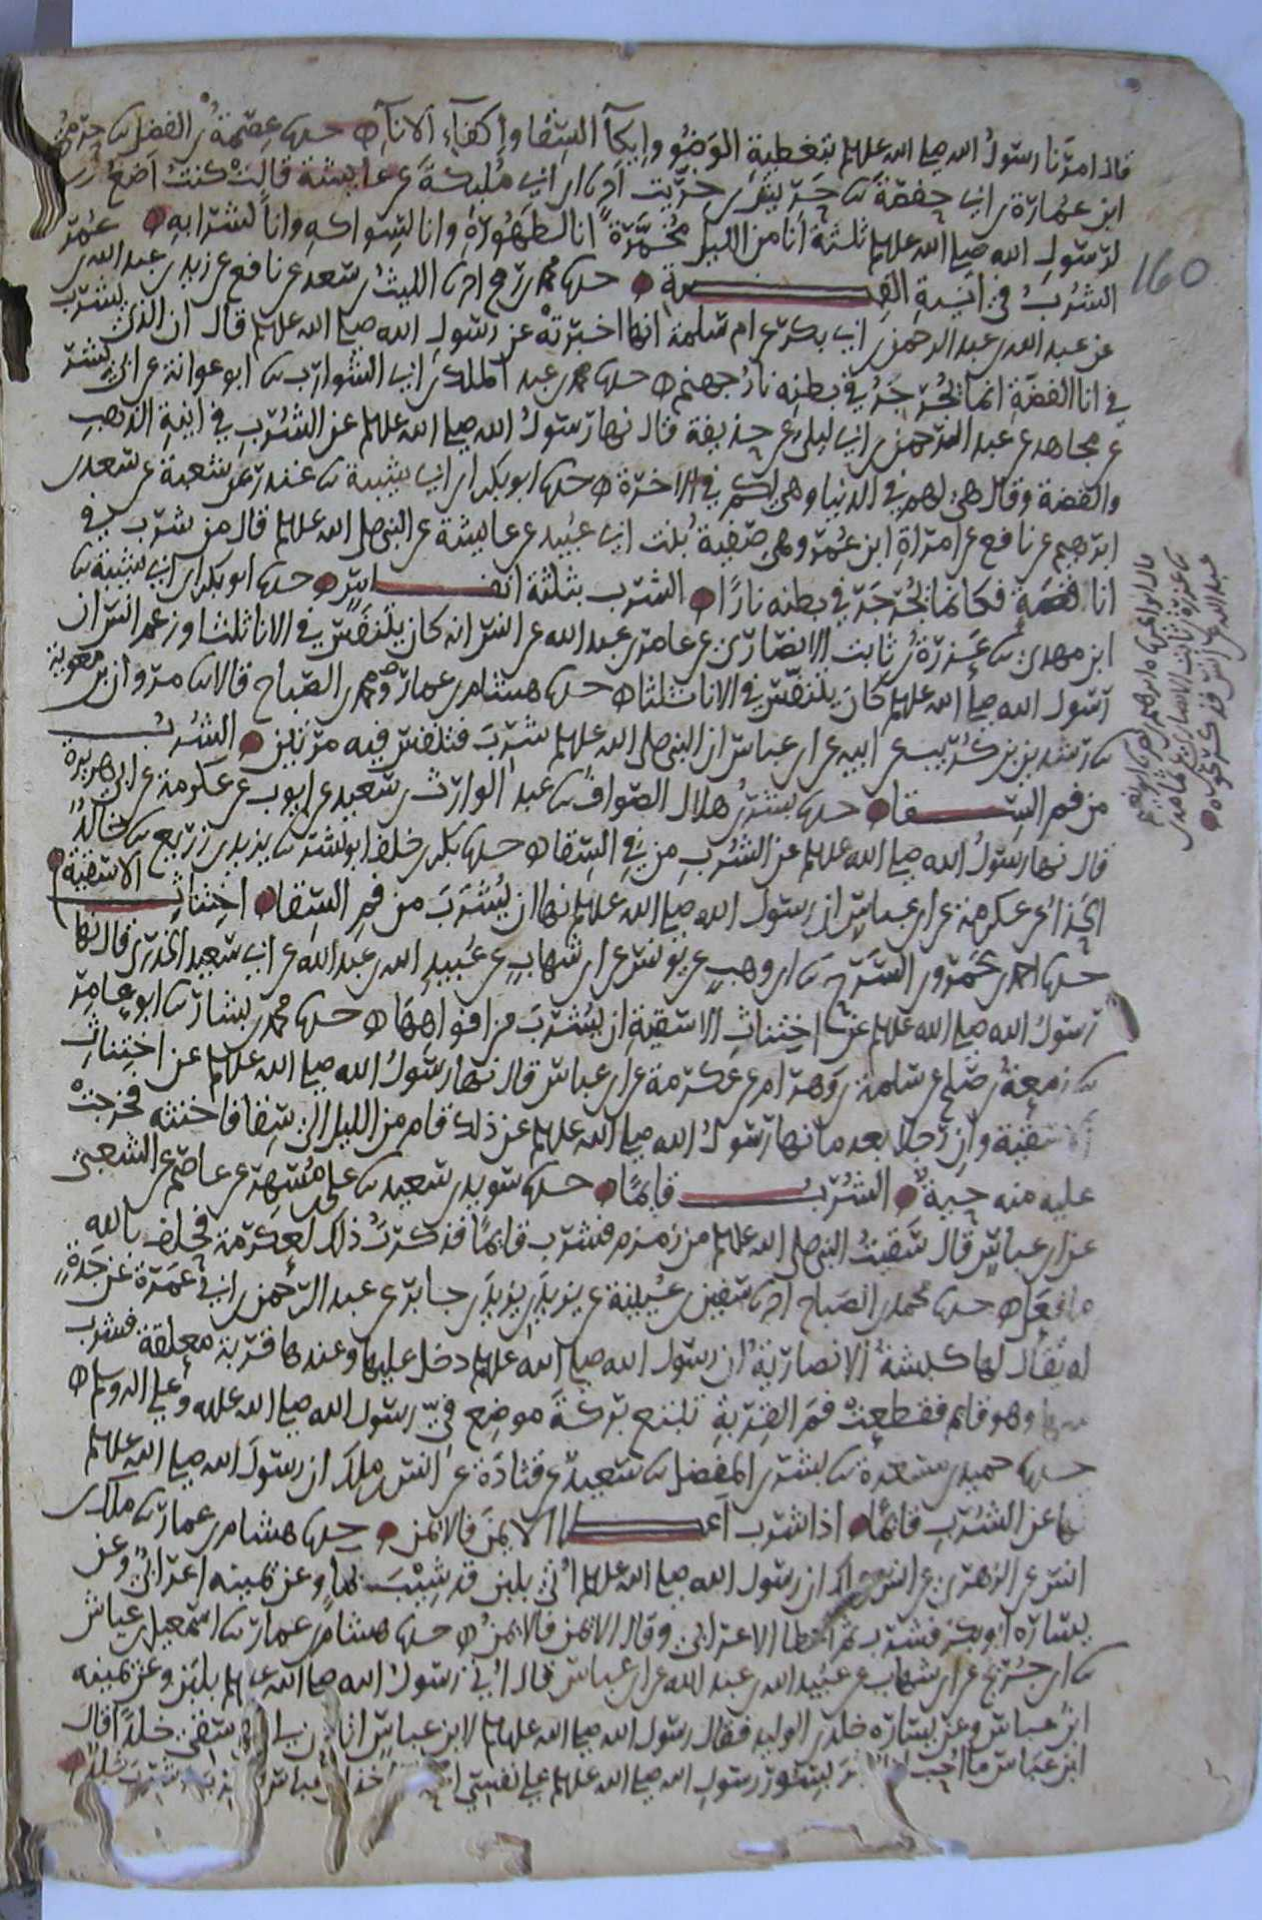 قال امرنا رسول الله صلى الله عليه وسلم بتغطية الوضو وايكآ السقا واكفاء الانآ حدثنا عصمة بن الفضل ثنا حرمي
ابن عمارة بن ابي حفصة ثنا حريش بن خريت انا ابن ابي مليكة عن عايشة قالت كنت اضع
لرسول الله صلى الله عليه وسلم ثلثة انا من الليل مخمرة انا لطهوره وانا لسواكه وانا لشرابه
الشرب في انية الفضة حدثنا محمد بن رمح انا الليث بن سعد عن نافع عن زيد بن عبد الله بن عمر
عن عبد الله بن عبد الرحمن بن ابي بكر عن ام سلمة انها اخبرته عن رسول الله صلى الله عليه وسلم قال ان الذي يشرب
في انا الفضة انما يجرجر في بطنه نار جهنم حدثنا محمد بن عبد الملك بن ابي الشوارب ثنا ابو عوانة عن ابي بشر
عن مجاهد عن عبد الرحمن بن ابي ليلى عن حذيفة قال نها رسول الله صلى الله عليه وسلم عن الشرب في انية الذهب
والفضة وقال هي لهم في الدنيا وهي لكم في الاخرة حدثنا ابو بكر بن ابي شيبة ثنا غندر عن شعبة عن سعد بن
ابرهيم عن نافع عن امراة ابن عمر وهي صفية بنت ابي عبيد عن عايشة عن النبي صلى الله عليه وسلم قال من شرب في
انا فضة فكانما يجرجر في بطنه نارا الشرب بثلثة انفاس حدثنا ابو بكر بن ابي شيبة ثنا
ابن مهدي ثنا عزرة بن ثابت الانصاري عن ثمامة بن عبد الله عن انس انه كان يتنفس في الانا ثلثا وزعم انس ان
رسول الله صلى الله عليه وسلم كان يتنفس في الانا ثلثا حدثنا هشام بن عمار ومحمد بن الصباح قالا ثنا مروان بن معوية
ثنا رشدين بن كريب عن ابيه عن ابن عباس ان النبي صلى الله عليه وسلم شرب فتنفس فيه مرتين الشرب
من فم السقا حدثنا بشر بن هلال الصواف ثنا عبد الوارث بن سعيد عن ايوب عن عكرمة عن ابي هريرة
قال نها رسول الله صلى الله عليه وسلم عن الشرب من في السقا حدثنا بكر بن خلف ابو بشر ثنا يزيد بن زريع ثنا خالد
الحذا عن عكرمة عن ابن عباس ان رسول الله صلى الله عليه وسلم نها ان يشرب من فم السقا اختناث الاسقية
حدثنا احمد بن عمرو بن السرح ثنا ابن وهب عن يونس عن ابن شهاب عن عبيد الله بن عبد الله عن ابي سعيد الخدري قال نها
رسول الله صلى الله عليه وسلم عن اختناث الاسقية ان يشرب من افواهها حدثنا محمد بن بشار ثنا ابو عامر
ثنا زمعة بن صلح عن سلمة بن وهرام عن عكرمة عن ابن عباس قال نها رسول الله صلى الله عليه وسلم عن اختناث
الاسقية وان رجلا بعد ما نها رسول الله صلى الله عليه وسلم عن ذلك قام من الليل الى سقا فاختنثه فخرجت
عليه منه حية الشرب قايما حدثنا سويد بن سعيد ثنا علي بن مسهر عن عاصم عن الشعبي
عن ابن عباس قال سقيت النبي صلى الله عليه وسلم من زمزم فشرب قايما فذكرت ذلك لعكرمة فحلف بالله
ما فعل حدثنا محمد بن الصباح انا سفين بن عيينة عن يزيد بن يزيد بن جابر عن عبد الرحمن بن ابي عمرة عن جدة
له يقال لها كبشة الانصارية ان رسول الله صلى الله عليه وسلم دخل عليها وعندها قربة معلقة فشرب
منها وهو قايم فقطعت فم القربة تبتغي بركة موضع في رسول الله صلى الله عليه وعلى اله وسلم
حدثنا حميد بن مسعدة ثنا بشر بن المفضل ثنا سعيد عن قتادة عن انس بن ملك ان رسول الله صلى الله عليه وسلم
نها عن الشرب قايما اذا شرب اعطا الايمن فالايمن حدثنا هشام بن عمار ثنا ملك بن
انس عن الزهري عن انس بن ملك ان رسول الله صلى الله عليه وسلم اتي بلبن قد شيب بما وعن يمينه اعرابي وعن
يساره ابو بكر فشرب ثم اعطا الاعرابي وقال الايمن فالايمن حدثنا هشام بن عمار ثنا اسمعيل بن عياش
ثنا ابن جريج عن ابن شهاب عن عبيد الله بن عبد الله عن ابن عباس قال اتي رسول الله صلى الله عليه وسلم بلبن وعن يمينه
ابن عباس وعن يساره خلد بن الوليد فقال رسول الله صلى الله عليه وسلم لابن عباس اتاذن لي ان اسقي خلدا قال
ابن عباس ما احب ان اوثر بسور رسول الله صلى الله عليه وسلم على نفسي فاخذ ابن عباس فشرب وشرب خلد
160